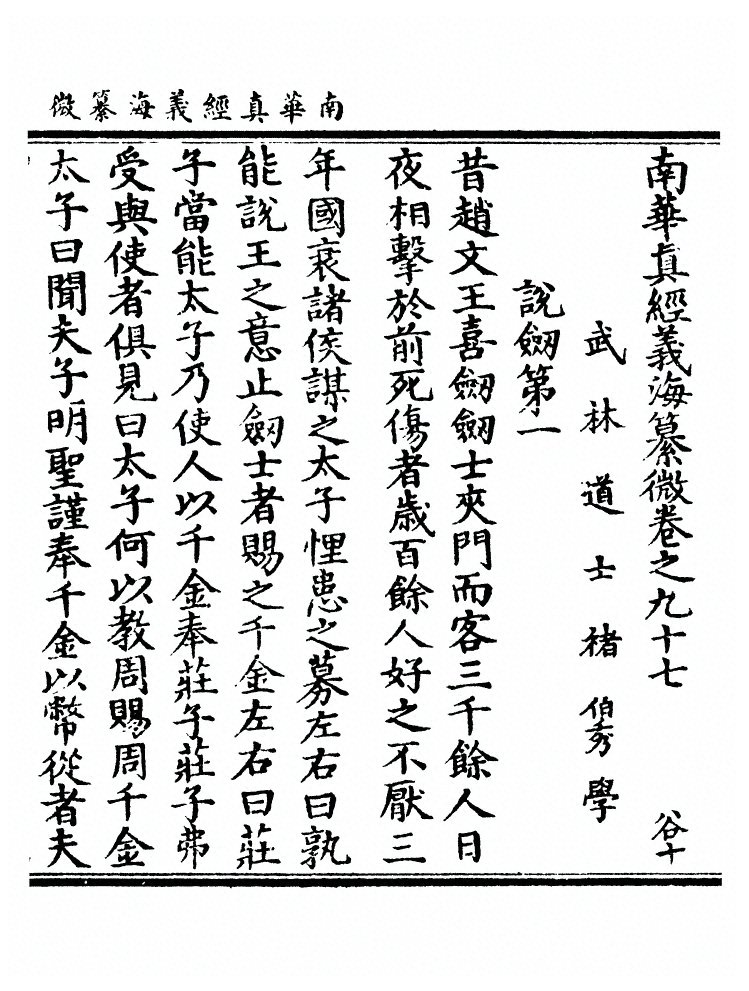 南華真經義海纂微
南華真經義海纂微卷之九十七 谷十
武林道士褚伯秀學
說劒第一
昔趙文王喜劒劒士夾門而客三千餘人日
夜相擊於前死傷者歲百餘人好之不厭三
年國衰諸侯謀之太子悝患之募左右曰孰
能說王之意止劒士者賜之千金左右曰莊
子當能太子乃使人以千金奉莊子莊子弗
受與使者俱見曰太子何以教周賜周千金
太子曰聞夫子明聖謹奉千金以幣從者夫